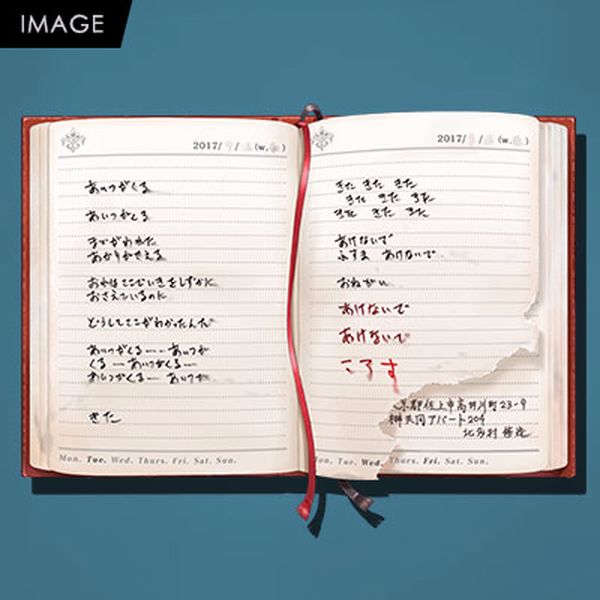 IMAGE
2017/ 9/ (w. )
あいつがくる
あいつがくる
まどがわれた
あかりがきえる
おれはここでいきをしずかに
おさえているのに
どうしてここがわかったんだ
あいつがくる--あいつが
くる--あいつがくる--
あいつがくる--あいつが
きた
Mon. Tue. Wed. Thurs. Fri. Sat. Sun.
2017/ (w. )
きた きた きた
きた きた きた
きた きた きた
あけないで
ふすま あけないで
おねがい
あけないで
あけないで
ころす
京都佐上市高田川町23-9
共同アパート204
北多村
Tue. Wed. Thurs. Fri. Sat. Sun.